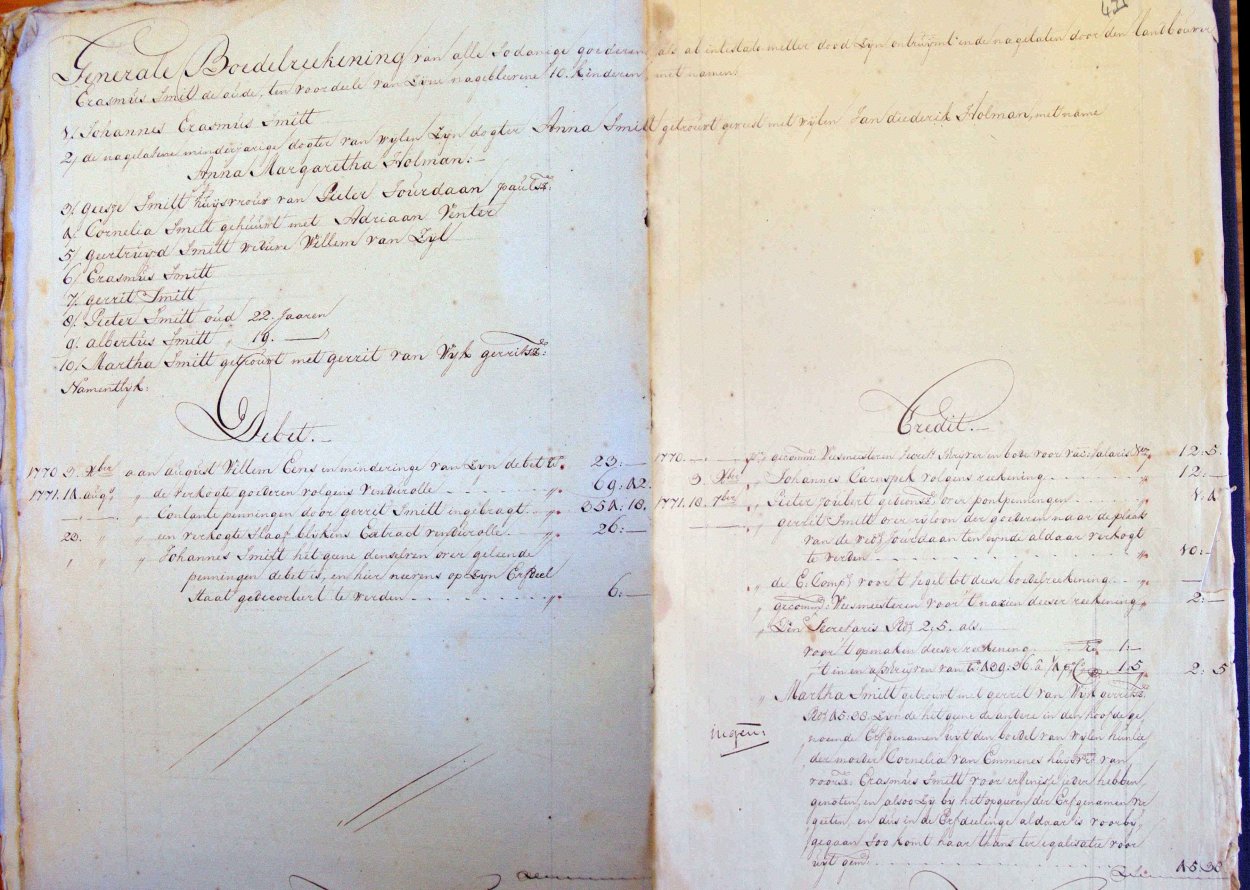 431
Generale Boedelreekening van alle sodanige goederen als ab intestato mitter dood zyn ontruymt ende nagelaten door den landbouwer
Erasmus Smit de oude, ten voordeele van zyne nageblevene 10. kinderen met namen
1. Johannes Erasmus Smitt
2/ de nagelatene mindervarige dogter van wylen zyn dogter Anna Smitt getrouwt geweest met wylen Jan diederik Holman, met name
Anna Margaretha Holman:-
3/ geesje Smitt huysvrouw van Pieter Jourdaan paulsz:
4. Cornelia Smitt gehuuwt met Adriaan Venter
5/ geertruyd Smitt weduwe Willem van Zyl
6/ Erasmus Smitt
7/ gerrit Smitt
8/ Pieter Smitt oud 22. Jaaren
9. albertus Smitt " 19. —
10/ Martha Smitt getrouwt met gerrit van Wyk gerritsz:
Namentlyk:
Debet.-
1770 3. Xber aan august Willem Eens in minderinge van zyn debet 23:—
1771. 14 augs " de verkogte goederen volgens vendurolle 69:42.
" Contante penningen door gerrit Smitt ingebragt 354:18.
23. " " een verkogte slaaf blykens Extract vendurolle 26:—
" " " Johannes Smitt het geene denselven over geleende
penningen debet is, en hier nevens op zyn Erfdeel
staat gedecorteert te werden 6:—
Credit.-
1770. gecomm: Weesmeesteren Secrets. en bode voor vac: salaris 12:5.
3. Xber " Johannes Carnspek volgens reekening 12:—
1771. 18. 7ber " Pieter Joubert over pontpenningen 1:4
" gerrit Smitt over ryloon der goederen naar de plaats
van de wed: Jourdaan ten eynde aldaar verkogt
te werden 10:—
" de E: Comp: voor 't segel tot deese boedelreekening —
" gecomm: Weesmeesteren voor 't nazien deeser reekening 2:—
" Den Secretaris Rds 2:5. als
voor 't opmaken deeser reekening 1:—
't in en afschryven van 439:36. â 1/4 p C: 1:5 2:5
" Martha Smitt getrouwt met gerrit van Wyk gerritsz:
Rds 45:38. zynde het geene de andere in den hoofde ge,
noemde Erfgenamen uyt den boedel van wylen hunlie
der moeder Cornelia van Emmenes huysvr: van
voorsz: Erasmus Smitt voor erfenisse ieder hebben
genoten, en alsoo zy by het opgeven der Erfgenamen ver
geeten, en dus in de Erfdeelinge aldaar is voorby,
gegaan Soo komt haar thans ter egalisatie voor
uyt gem: 45:38